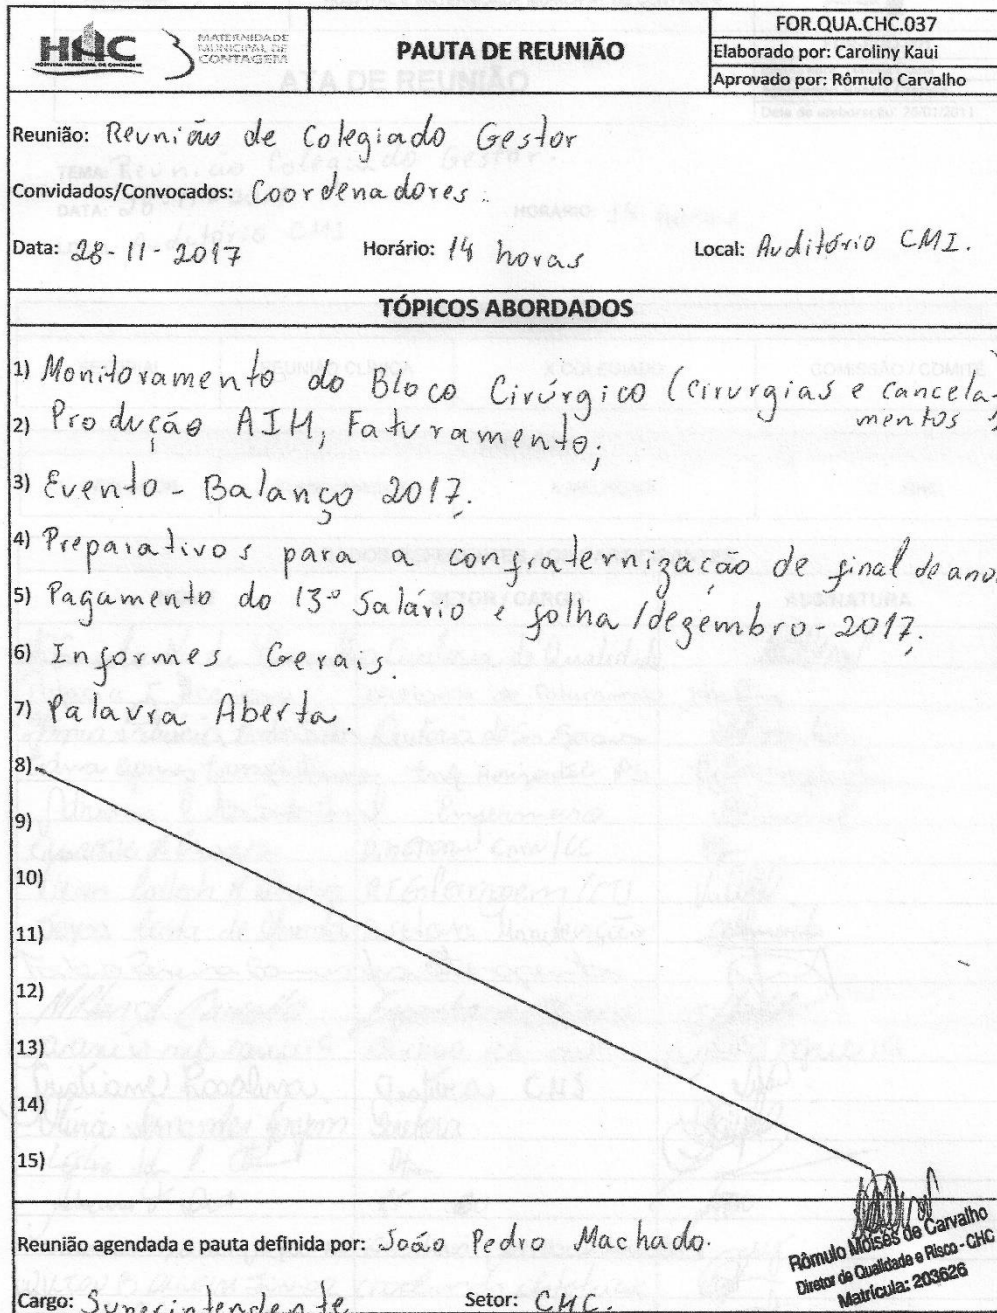 HMC
HOSPITAL MUNICIPAL DE CONTAGEM
MATERNIDADE
MUNICIPAL DE
CONTAGEM
PAUTA DE REUNIÃO
FOR.QUA.CHC.037
Elaborado por: Caroliny Kaui
Aprovado por: Rômulo Carvalho
ATA DE REUNIÃO
Reunião: Reunião de Colegiado Gestor
Convidados/Convocados: Coordenadores.
Data: 28-11-2017 Horário: 14 horas Local: Auditório CMI.
TÓPICOS ABORDADOS
1) Monitoramento do Bloco Cirúrgico (cirurgias e cancela-
mentos)
2) Produção AIH, Faturamento,
3) Evento - Balanço 2017.
4) Preparativos para a confraternização de final de ano.
5) Pagamento do 13º Salário e folha/dezembro-2017.
6) Informes Gerais.
7) Palavra Aberta.
8)
9)
10)
11)
12)
13)
14)
15)
Reunião agendada e pauta definida por: João Pedro Machado.
Cargo: Superintendente Setor: CHC.
Rômulo Moisés de Carvalho
Diretor de Qualidade e Risco - CHC
Matrícula: 203626